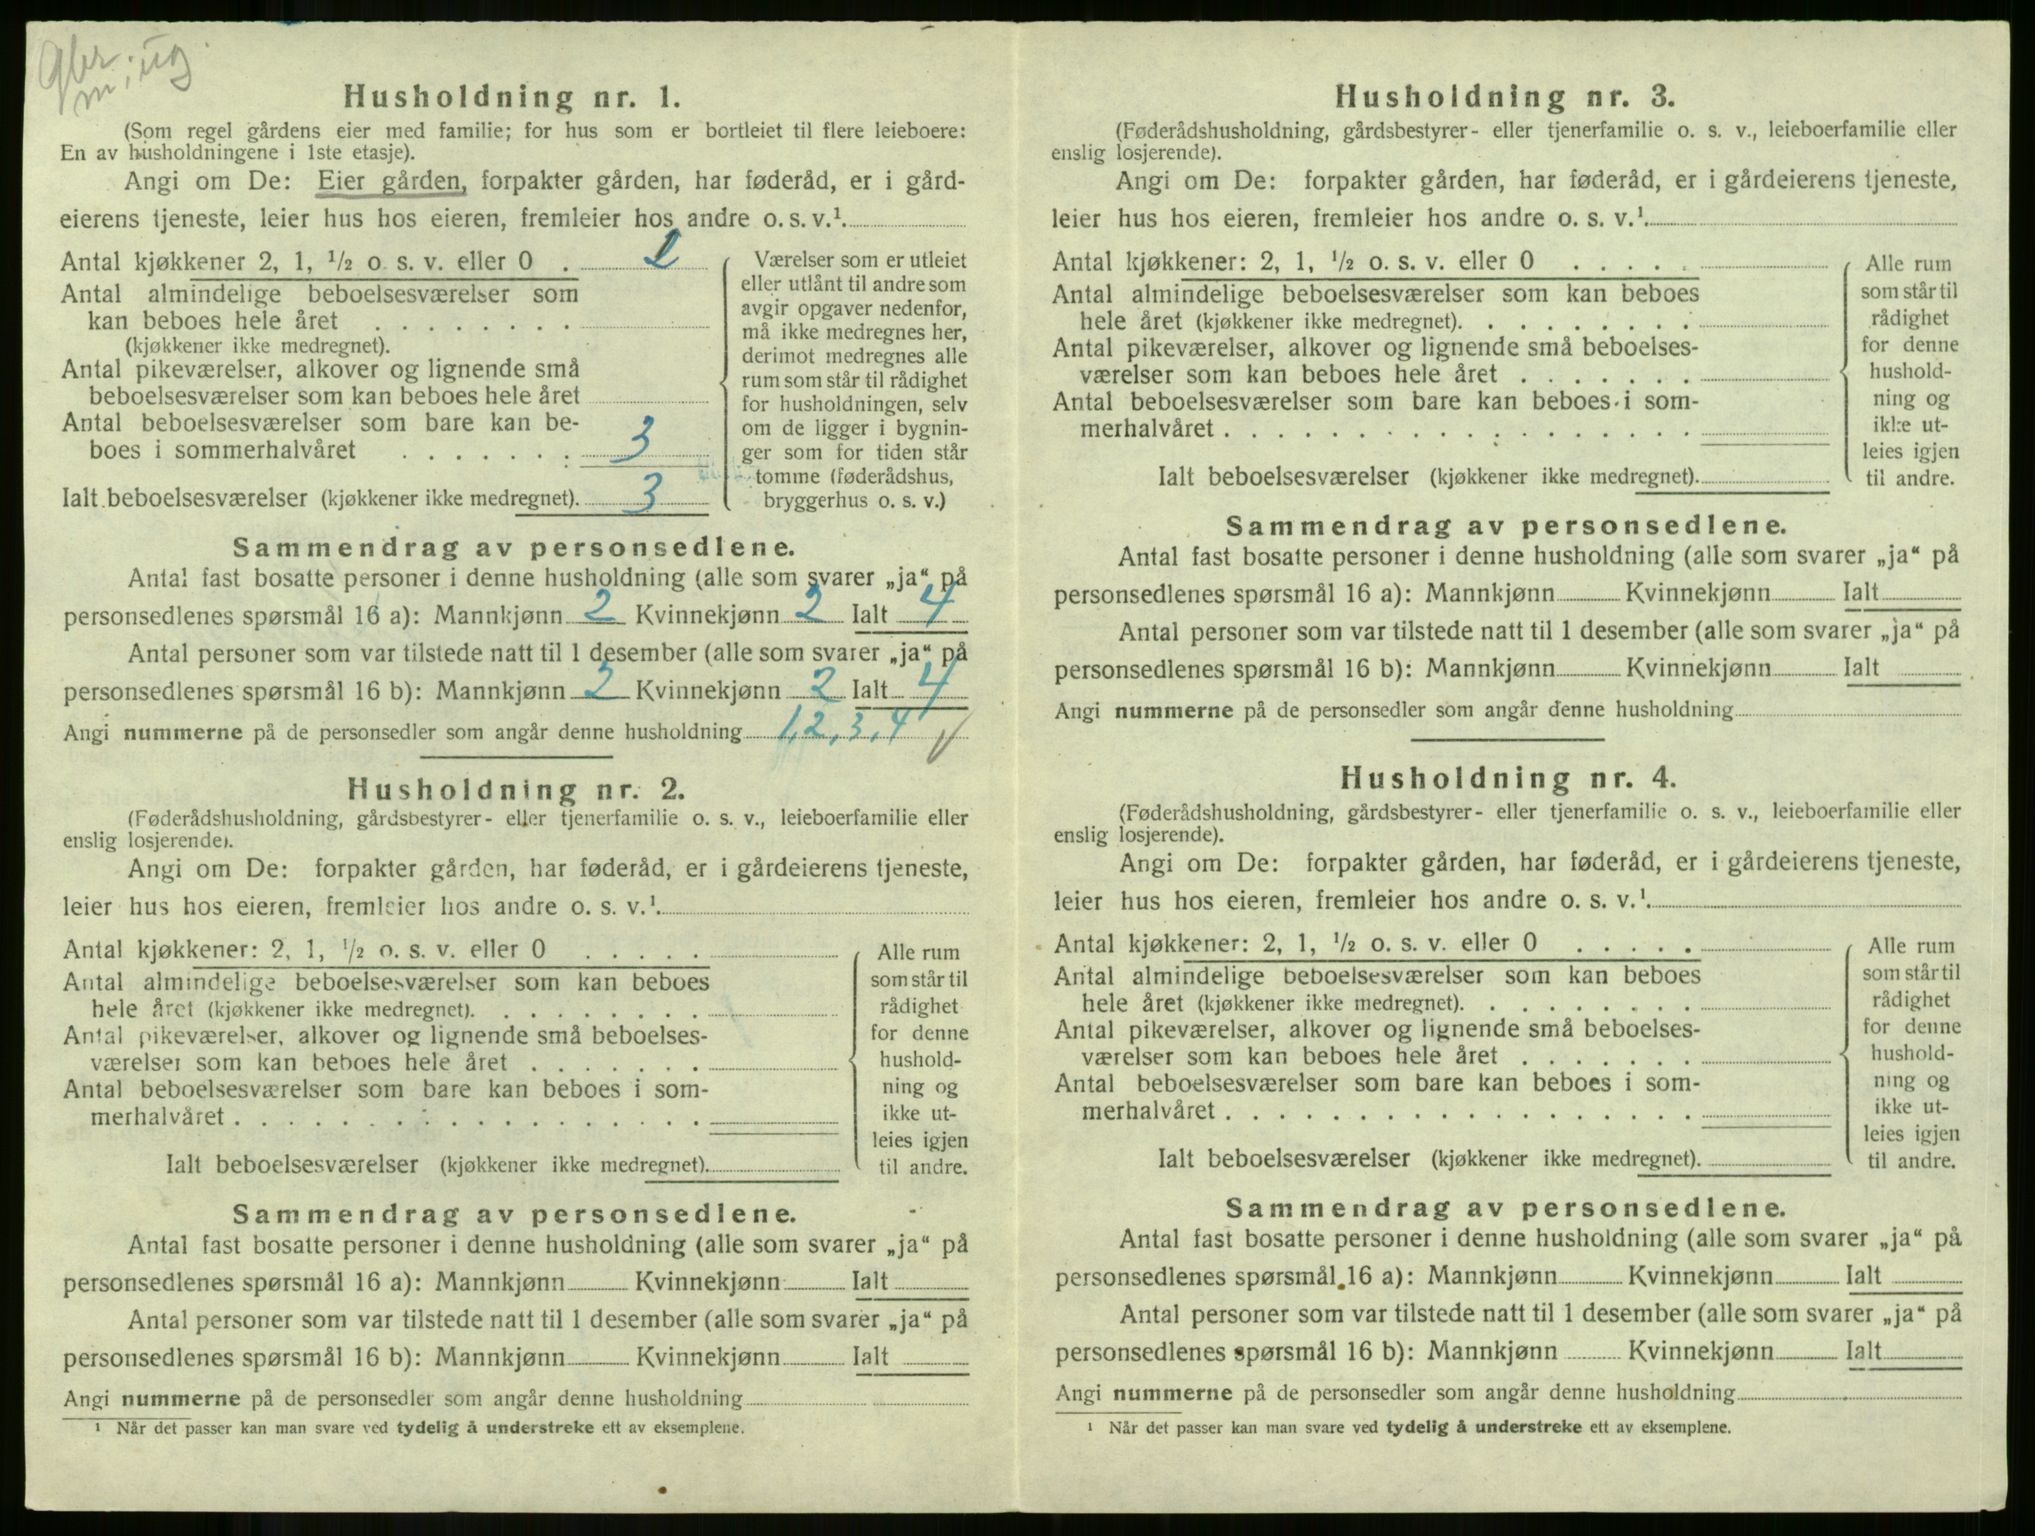 Husholdning nr. 1.
(Som regel gårdens eier med familie; for hus som er bortleiet til flere leieboere:
En av husholdningene i 1ste etasje).
Angi om De: Eier gården, forpakter gården, har føderåd, er i gård-
eierens tjeneste, leier hus hos eieren, fremleier hos andre o. s. v.¹.
Antal kjøkkener 2, 1, ½ o. s. v. eller 0 .
Antal almindelige beboelsesværelser som
kan beboes hele året . . . . . . . .
(kjøkkener ikke medregnet).
Antal pikeværelser, alkover og lignende små
beboelsesværelser som kan beboes hele året
Antal beboelsesværelser som bare kan be-
boes i sommerhalvåret . . . . . . . 3
Ialt beboelsesværelser (kjøkkener ikke medregnet). 3
Værelser som er utleiet
eller utlånt til andre som
avgir opgaver nedenfor,
må ikke medregnes her,
derimot medregnes alle
rum som står til rådighet
for husholdningen, selv
om de ligger i bygnin-
ger som for tiden står
tomme (føderådshus,
bryggerhus o. s. v.)
Sammendrag av personsedlene.
Antal fast bosatte personer i denne husholdning (alle som svarer „ja“ på
personsedlenes spørsmål 16 a): Mannkjønn 2 Kvinnekjønn 2 Ialt 4
Antal personer som var tilstede natt til 1 desember (alle som svarer „ja“ på
personsedlenes spørsmål 16 b): Mannkjønn 2 Kvinnekjønn 2 Ialt 4
Angi nummerne på de personsedler som angår denne husholdning 1, 2, 3, 4
Husholdning nr. 2.
(Føderådshusholdning, gårdsbestyrer- eller tjenerfamilie o. s. v., leieboerfamilie eller
enslig losjerende).
Angi om De: forpakter gården, har føderåd, er i gårdeierens tjeneste,
leier hus hos eieren, fremleier hos andre o. s. v.¹.
Antal kjøkkener: 2, 1, ½ o. s. v. eller 0 . . . . .
Antal almindelige beboelsesværelser som kan beboes
hele året (kjøkkener ikke medregnet). . . . . . . . .
Antal pikeværelser, alkover og lignende små beboelses-
værelser som kan beboes hele året . . . . . . .
Antal beboelsesværelser som bare kan beboes i som-
merhalvåret . . . . . . . . . . . . . . . . . .
Ialt beboelsesværelser (kjøkkener ikke medregnet).
Alle rum
som står til
rådighet
for denne
hushold-
ning og
ikke ut-
leies igjen
til andre.
Sammendrag av personsedlene.
Antal fast bosatte personer i denne husholdning (alle som svarer „ja“ på
personsedlenes spørsmål 16 a): Mannkjønn Kvinnekjønn Ialt
Antal personer som var tilstede natt til 1 desember (alle som svarer „ja“ på
personsedlenes spørsmål 16 b): Mannkjønn Kvinnekjønn Ialt
Angi nummerne på de personsedler som angår denne husholdning
¹ Når det passer kan man svare ved tydelig å understreke ett av eksemplene.
Husholdning nr. 3.
(Føderådshusholdning, gårdsbestyrer- eller tjenerfamilie o. s. v., leieboerfamilie eller
enslig losjerende).
Angi om De: forpakter gården, har føderåd, er i gårdeierens tjeneste,
leier hus hos eieren, fremleier hos andre o. s. v.¹.
Antal kjøkkener: 2, 1, ½ o. s. v. eller 0 . . . . .
Antal almindelige beboelsesværelser som kan beboes
hele året (kjøkkener ikke medregnet). . . . . . . . .
Antal pikeværelser, alkover og lignende små beboelses-
værelser som kan beboes hele året . . . . . . .
Antal beboelsesværelser som bare kan beboes i som-
merhalvåret . . . . . . . . . . . . . . . . . .
Ialt beboelsesværelser (kjøkkener ikke medregnet).
Alle rum
som står til
rådighet
for denne
hushold-
ning og
ikke ut-
leies igjen
til andre.
Sammendrag av personsedlene.
Antal fast bosatte personer i denne husholdning (alle som svarer „ja“ på
personsedlenes spørsmål 16 a): Mannkjønn Kvinnekjønn Ialt
Antal personer som var tilstede natt til 1 desember (alle som svarer „ja“ på
personsedlenes spørsmål 16 b): Mannkjønn Kvinnekjønn Ialt
Angi nummerne på de personsedler som angår denne husholdning
Husholdning nr. 4.
(Føderådshusholdning, gårdsbestyrer- eller tjenerfamilie o. s. v., leieboerfamilie eller
enslig losjerende).
Angi om De: forpakter gården, har føderåd, er i gårdeierens tjeneste,
leier hus hos eieren, fremleier hos andre o. s. v.¹.
Antal kjøkkener: 2, 1, ½ o. s. v. eller 0 . . . . .
Antal almindelige beboelsesværelser som kan beboes
hele året (kjøkkener ikke medregnet). . . . . . . . .
Antal pikeværelser, alkover og lignende små beboelses-
værelser som kan beboes hele året . . . . . . .
Antal beboelsesværelser som bare kan beboes i som-
merhalvåret . . . . . . . . . . . . . . . . . .
Ialt beboelsesværelser (kjøkkener ikke medregnet).
Alle rum
som står til
rådighet
for denne
hushold-
ning og
ikke ut-
leies igjen
til andre.
Sammendrag av personsedlene.
Antal fast bosatte personer i denne husholdning (alle som svarer „ja“ på
personsedlenes spørsmål 16 a): Mannkjønn Kvinnekjønn Ialt
Antal personer som var tilstede natt til 1 desember (alle som svarer „ja“ på
personsedlenes spørsmål 16 b): Mannkjønn Kvinnekjønn Ialt
Angi nummerne på de personsedler som angår denne husholdning
¹ Når det passer kan man svare ved tydelig å understreke ett av eksemplene.